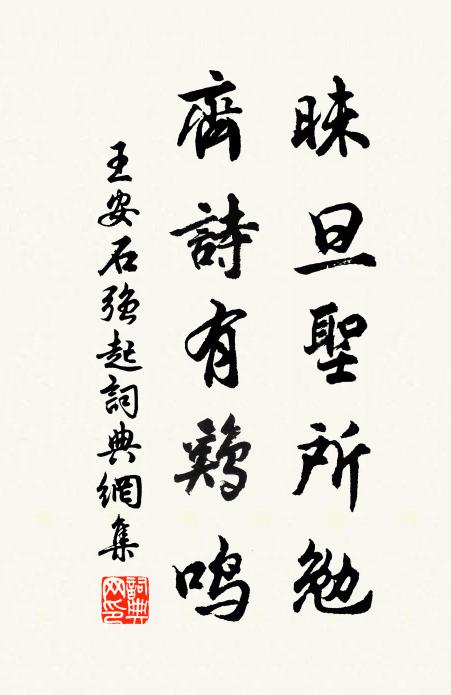 昧旦聖所勉
齊詩有鷄鳴
王安石強起詞典網集
詞典網印